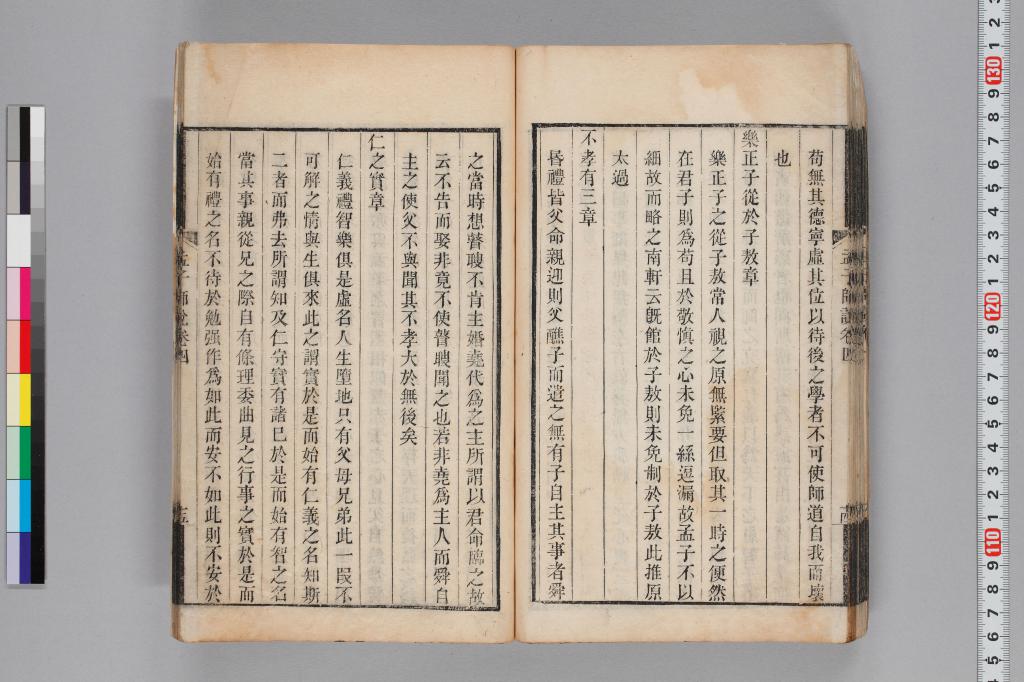 苟無其德寧虛其位以待後之學者不可使師道自我而壞
也
樂正子從於子敖章
樂正子之從子敖當人視之原無緊要但取其一時之便然
在君子則為苟且於敬慎之心未免一絲逗漏故孟子不以
細故而略之南軒云旣館於子敖則未免制於子敖此推原
太過
不孝有三章
昏禮皆父命親迎則父醮子而遣之無有子自主其事者舜
孟子師說卷四
之當時想瞽瞍不肯主婚堯代為之主所謂以君命臨之故
云不告而娶非竟不使瞽瞍聞之也若非堯為主人而舜自
主之使父不與聞其不孝大於無後矣
仁之實章
仁義禮智樂俱是虛名人生墮地只有父母兄弟此一段不
可解之情與生俱來此之謂實於是而始有仁義之名知斯
二者而弗去所謂知及仁守實有諸已於是而始有智之名
當其事親從兄之際自有條理委曲見之行事之實於是而
始有禮之名不待於勉强作為如此而安不如此則不安於
孟子師說卷四